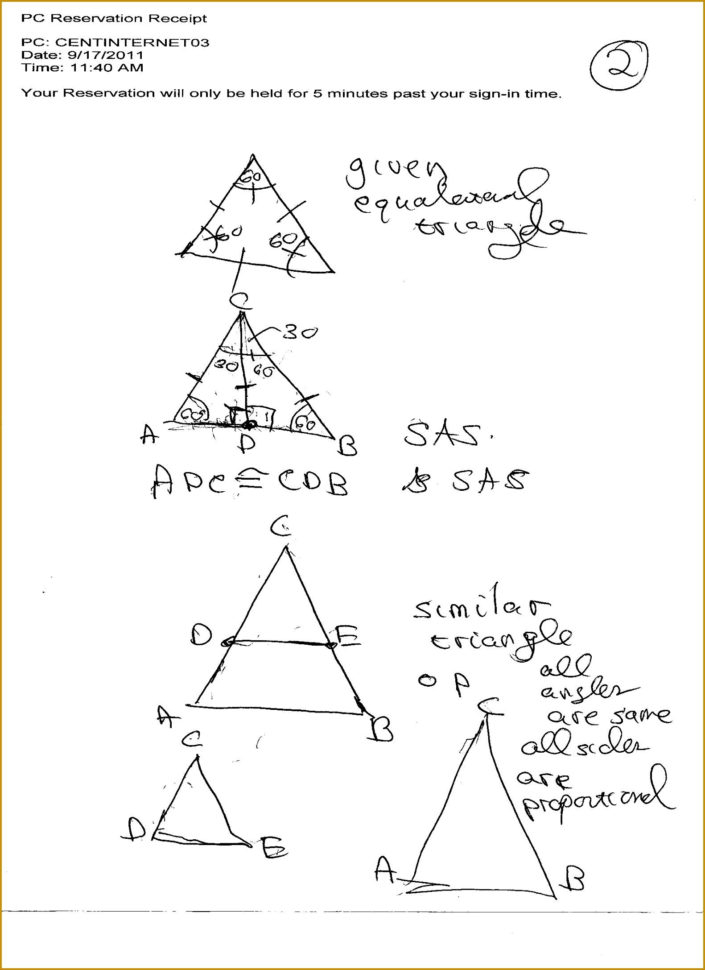 PC Reservation Receipt
PC: CENTINTERNET03
Date: 9/17/2011
Time: 11:40 AM
Your Reservation will only be held for 5 minutes past your sign-in time.
2
given
equaleteral
triangle
60
60 60
C
30
30 60
60 60
A D B
SAS.
ADC ≅ CDB SAS
C
D E
A B
similar
triangle
all
angles
are same
all sides
are
proportional
O P
C
D E
C
A B